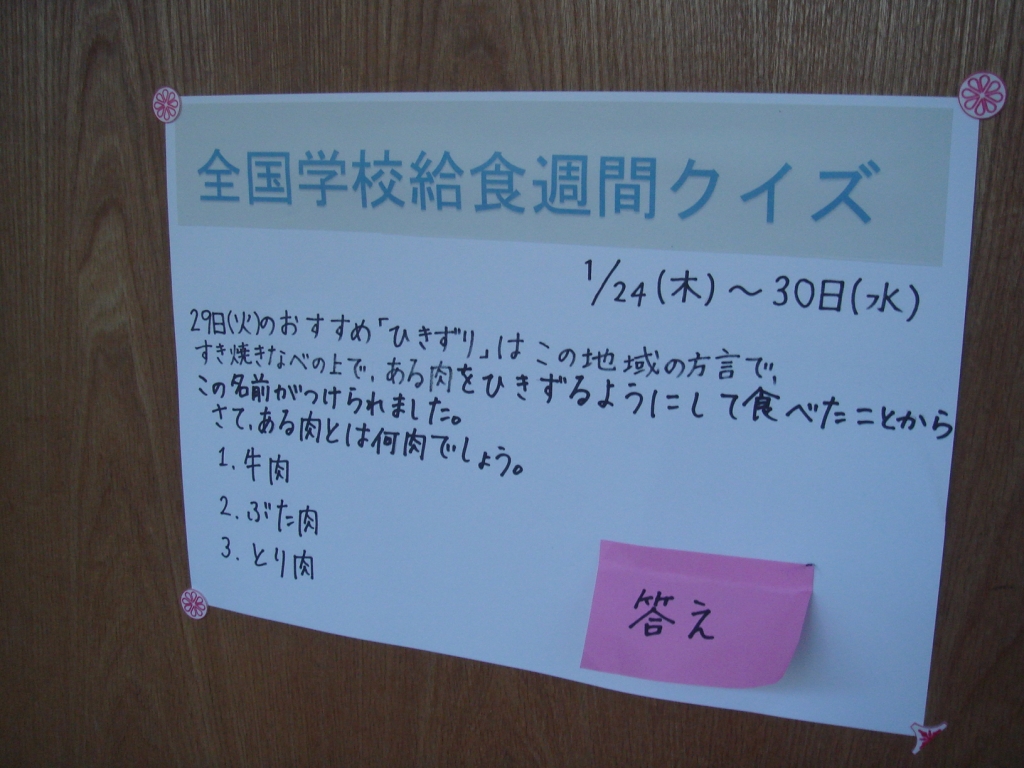 全国学校給食週間クイズ
1/24(木)～30日(水)
29日(火)のおすすめ「ひきずり」はこの地域の方言で、
すき焼きなべの上で、ある肉をひきずるようにして食べたことから
この名前がつけられました。
さて、ある肉とは何肉でしょう。
1. 牛肉
2. ぶた肉
3. とり肉
答え